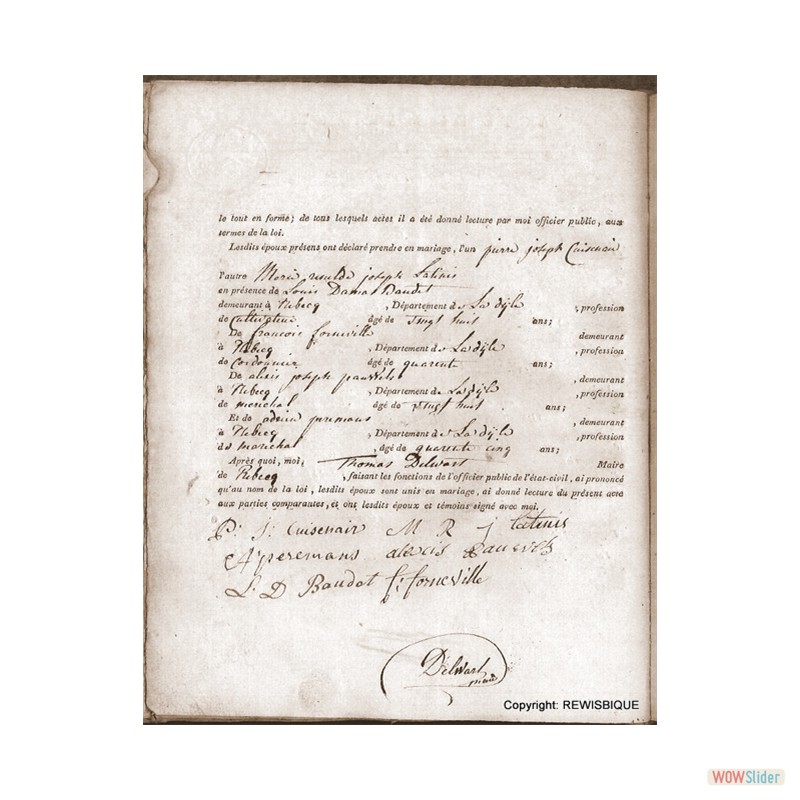 le tout en forme; de tous lesquels actes il a été donné lecture par moi officier public, aux
termes de la loi.
Lesdits époux présens ont déclaré prendre en mariage, l'un pierre joseph Cuisenair
l'autre Marie joseph Latinis
en présence de Louis Damas Baudet
demeurant à Rebecq , Département de La dijle , profession
de Cultivateur âgé de vingt huit ans;
De francois forneville demeurant
à Rebecq , Département de La dijle , profession
de Cordonnier âgé de quarente ans;
De alexis joseph pauwels , demeurant
à Rebecq , Département de La dijle , profession
de mareichal âgé de vingt huit ans;
Et de premans , demeurant
à Rebecq , Département de La dijle , profession
de marechal , âgé de quarente cinq ans;
Après quoi, moi, Thomas Delwart Maire
de Rebecq , faisant les fonctions de l'officier public de l'état-civil, ai prononcé
qu'au nom de la loi, lesdits époux sont unis en mariage, ai donné lecture du présent acte
aux parties comparantes, et ont lesdits époux et témoins signé avec moi.
P: J: Cuisenair M R J latinis
A peremans alexis pauwels
L. D Baudet f: forneville
Delwart
Copyright: REWISBIQUE
WOWSlider